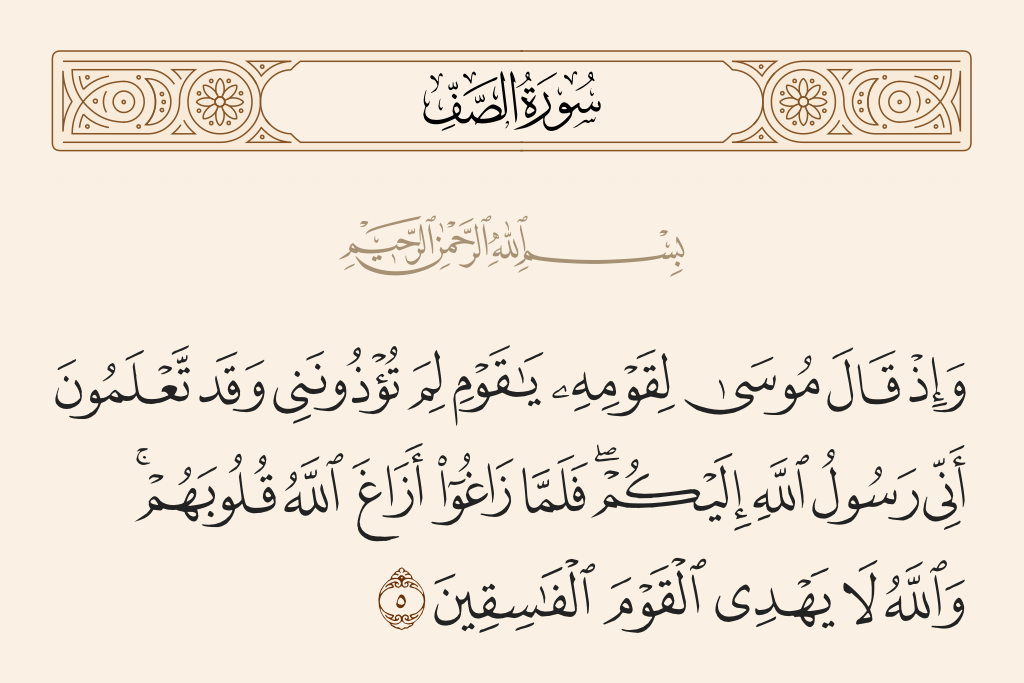 سُورَةُ الصَّفِّ
بِسْمِ ٱللَّهِ ٱلرَّحْمَٰنِ ٱلرَّحِيمِ
وَإِذْ قَالَ مُوسَىٰ لِقَوْمِهِۦ يَٰقَوْمِ لِمَ تُؤْذُونَنِى وَقَد تَّعْلَمُونَ
أَنِّى رَسُولُ ٱللَّهِ إِلَيْكُمْ ۖ فَلَمَّا زَاغُوٓا۟ أَزَاغَ ٱللَّهُ قُلُوبَهُمْ ۚ
وَٱللَّهُ لَا يَهْدِى ٱلْقَوْمَ ٱلْفَٰسِقِينَ ٥